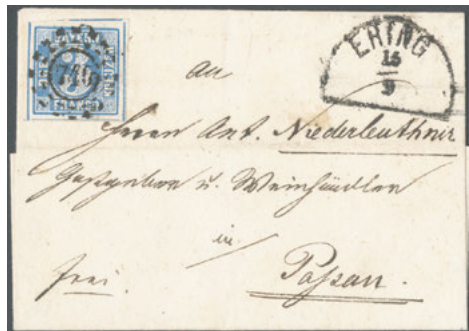 ERING
15
9
an
Herrn Ant. Niederleuthner
Gastgeber u. Weinhändler
in
Passau.
frei.